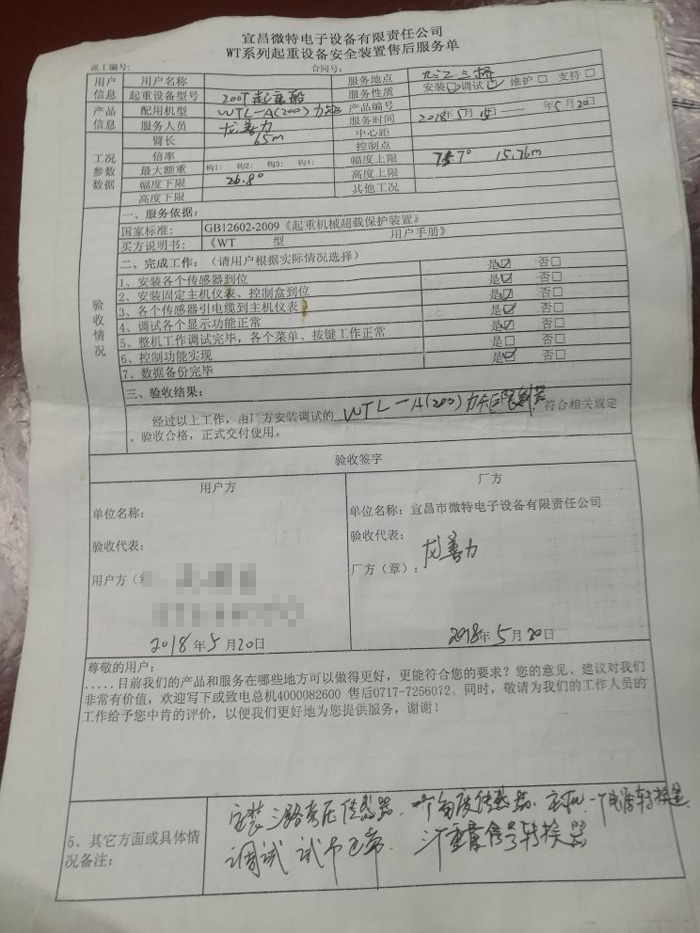 宜昌微特电子设备有限责任公司
WT系列起重设备安全装置售后服务单
派工编号: 合同号:
用户信息 用户名称 服务地点 九江三桥
起重设备型号 200T起重船 服务性质 安装☑ 调试☑ 维护□ 支持□
产品信息 配用机型 WTL-A(200)力矩 产品编号
服务人员 龙善力 服务时间 2018年5月15日—— 年5月20日
工况参数数据 臂长 65m 中心距
倍率 控制点
最大额重 钩1: 钩2: 钩3: 钩1: 幅度上限 75.7° 15.76m
幅度下限 26.8° 高度上限
高度下限 其他工况
验收情况
一、服务依据:
国家标准: GB12602-2009《起重机械超载保护装置》
买方说明书: 《WT 型 用户手册》
二、完成工作:(请用户根据实际情况选择)
1、安装各个传感器到位 是☑ 否□
2、安装固定主机仪表、控制盒到位 是☑ 否□
3、各个传感器引电缆到主机仪表 是☑ 否□
4、调试各个显示功能正常 是☑ 否□
5、整机工作调试完毕,各个菜单、按键工作正常 是☑ 否□
6、控制功能实现 是□ 否□
7、数据备份完毕 是☑ 否□
三、验收结果:
经过以上工作,由厂方安装调试的 WTL-A(200)力矩限制器 符合相关规定
,验收合格,正式交付使用。
验收签字
用户方 厂方
单位名称: 单位名称:宜昌市微特电子设备有限责任公司
验收代表: 验收代表: 龙善力
用户方(章 厂方(章):
2018年5月20日 2018年5月20日
尊敬的用户:
.....目前我们的产品和服务在哪些地方可以做得更好,更能符合您的要求?您的意见、建议对我们
非常有价值,欢迎写下或致电总机4000082600 售后0717-7256072。同时,敬请为我们的工作人员的
工作给予您中肯的评价,以便我们更好地为您提供服务,谢谢!
5、其它方面或具体情况备注:
安装三路 传感器、一个角度传感器、主机、一个电源转换
调试 试吊正常 重量信号转换器